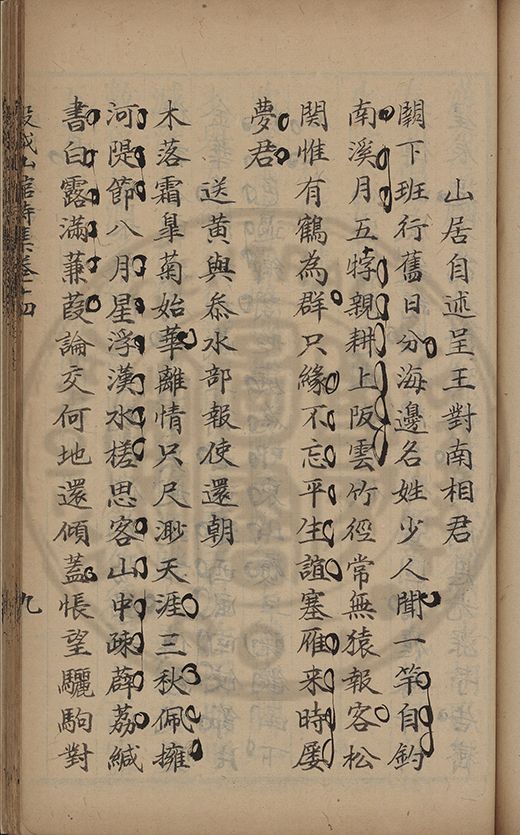 山居自述呈王對南相君
闕下班行舊日分海邊名姓少人聞一竿自釣
南溪月五㹀親耕上阪雲竹徑常無猿報客松
関惟有鶴為群只緣不忘平生誼塞雁来時屡
夢君
送黄與叅水部報使還朝
木落霜臯菊始華離情只尺渺天涯三秋佩擁
河隄節八月星浮漢水槎思客山中疎薜荔緘
書白露滿蒹葭論交何地還傾蓋悵望驪駒對
山館詩集卷十四
九